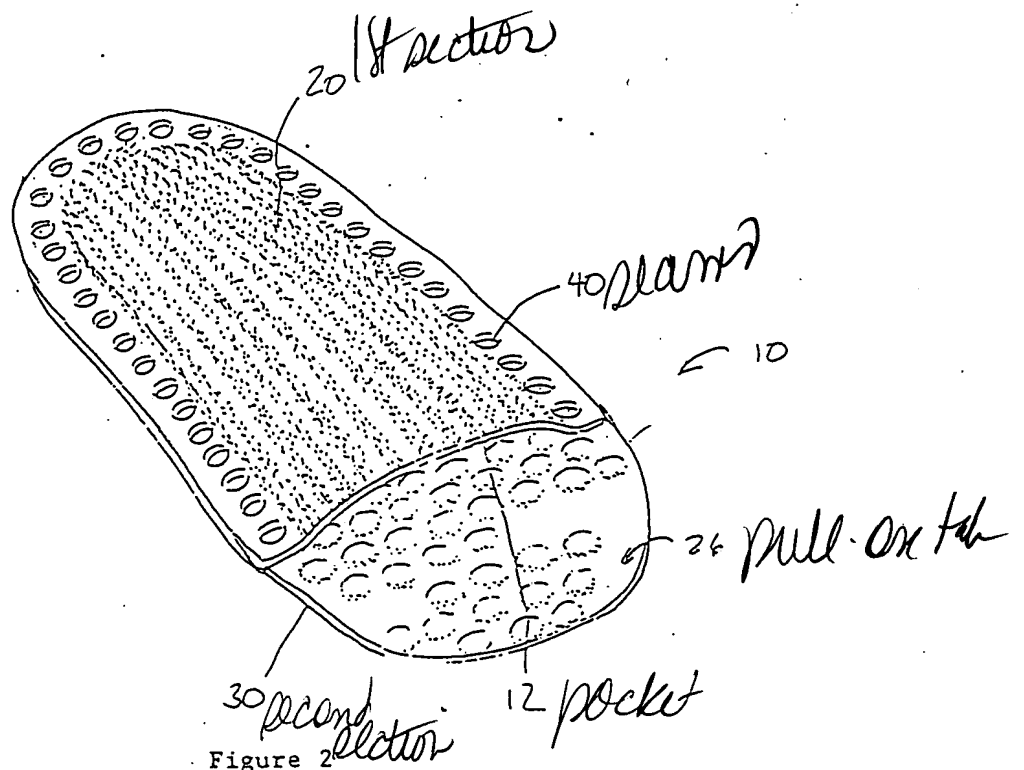 20 1st section
40 seams
10
26 pull-on tab
30 second section
12 pocket
Figure 2